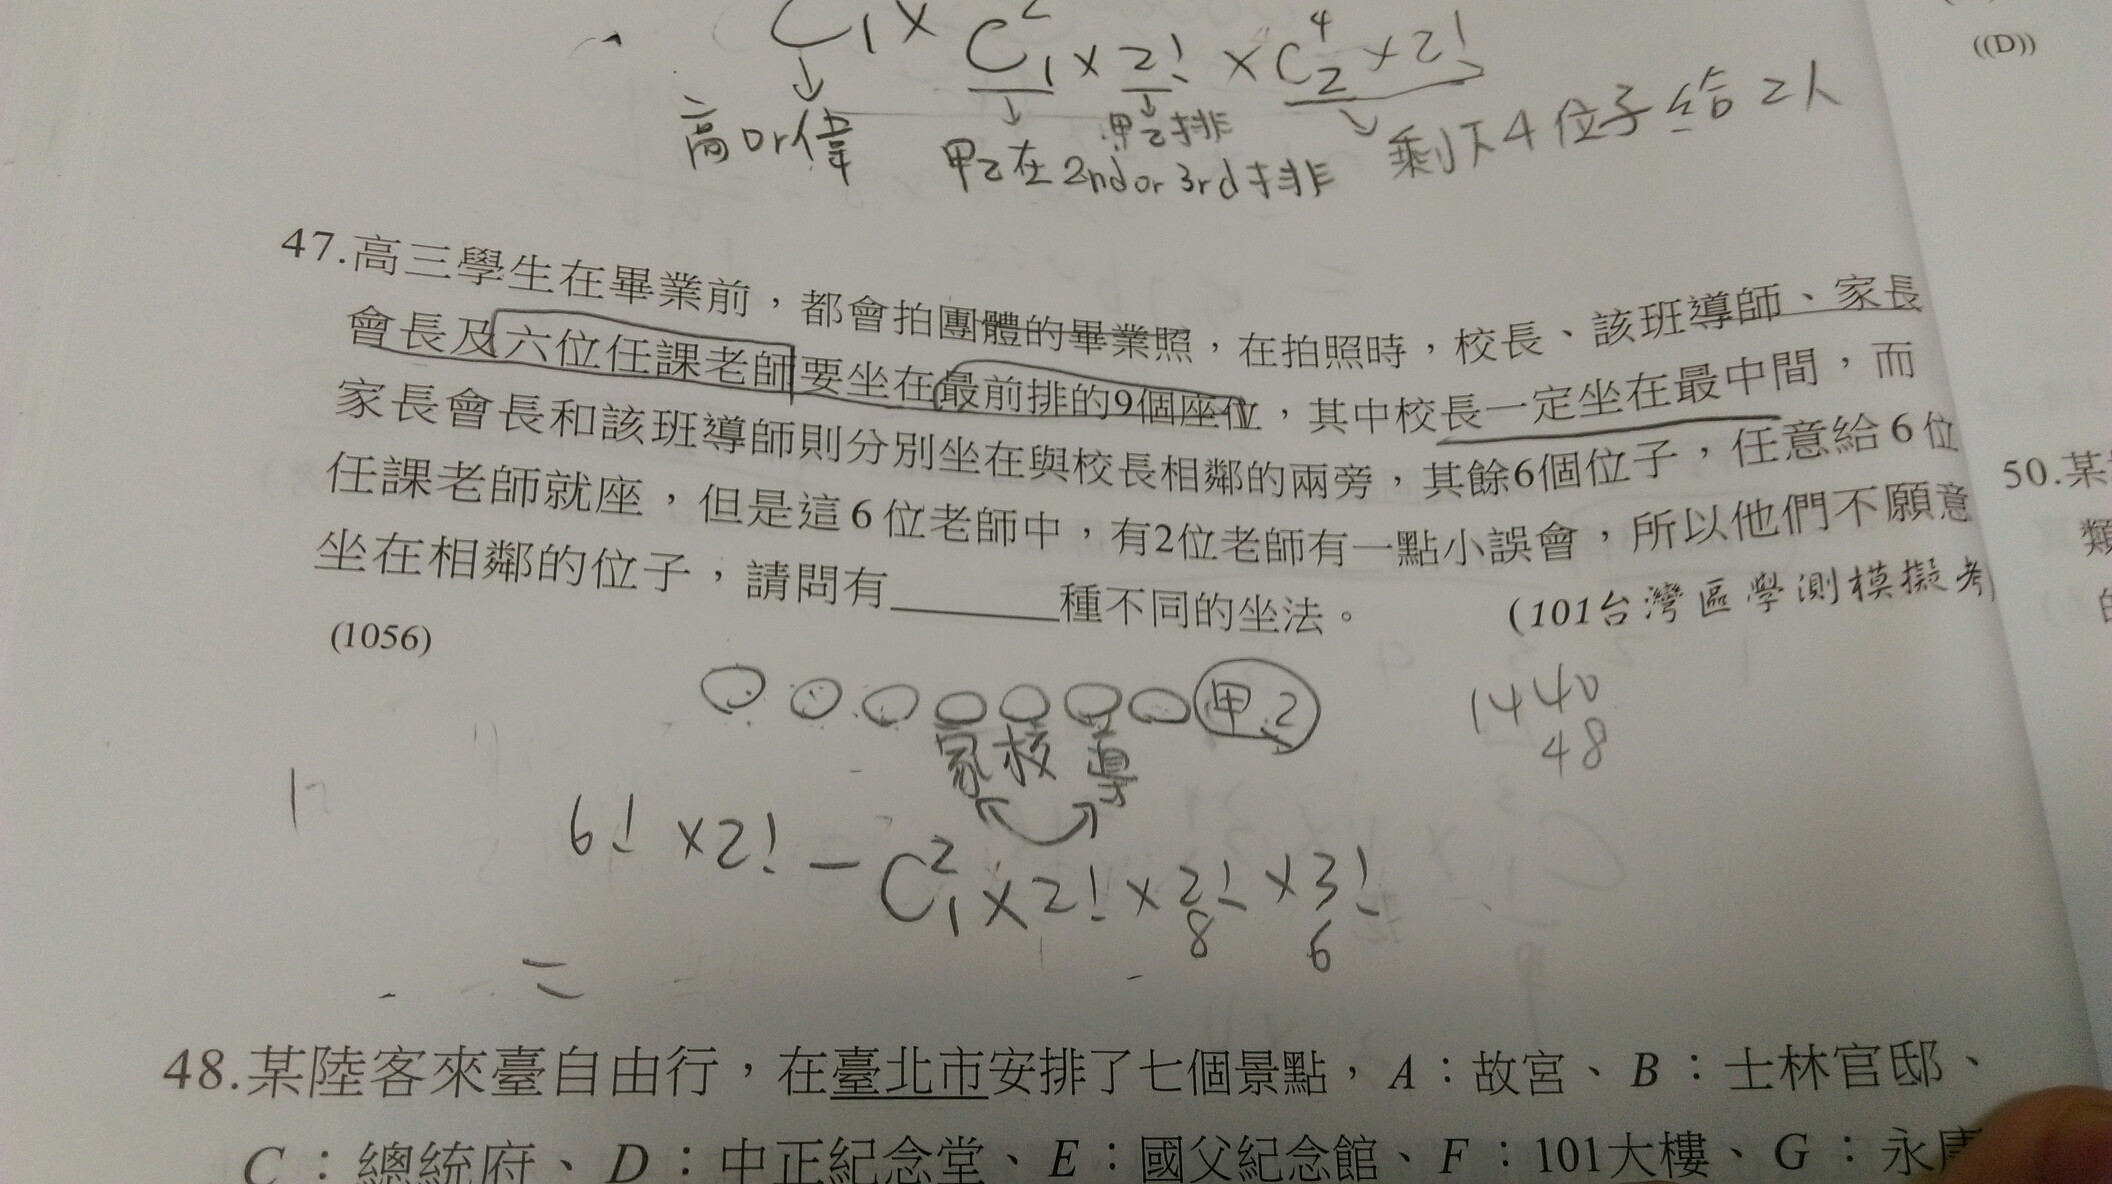 C₁ × C²₁ × 2! × C⁴₂ × 2!
高or偉
甲乙在2nd or 3rd排
甲乙排
剩下4位子給2人
47.高三學生在畢業前,都會拍團體的畢業照,在拍照時,校長、該班導師、家長
會長及六位任課老師要坐在最前排的9個座位,其中校長一定坐在最中間,而
家長會長和該班導師則分別坐在與校長相鄰的兩旁,其餘6個位子,任意給6位
任課老師就座,但是這6位老師中,有2位老師有一點小誤會,所以他們不願意
坐在相鄰的位子,請問有______種不同的坐法。 (101台灣區學測模擬考)
(1056)
甲.2
家 校 導
1440
48
6! ×2! − C²₁×2!×2!×3!
8 6
=
48.某陸客來臺自由行,在臺北市安排了七個景點,A:故宮、B:士林官邸、
C:總統府、D:中正紀念堂、E:國父紀念館、F:101大樓、G:永康
((D))
50.某
類
的